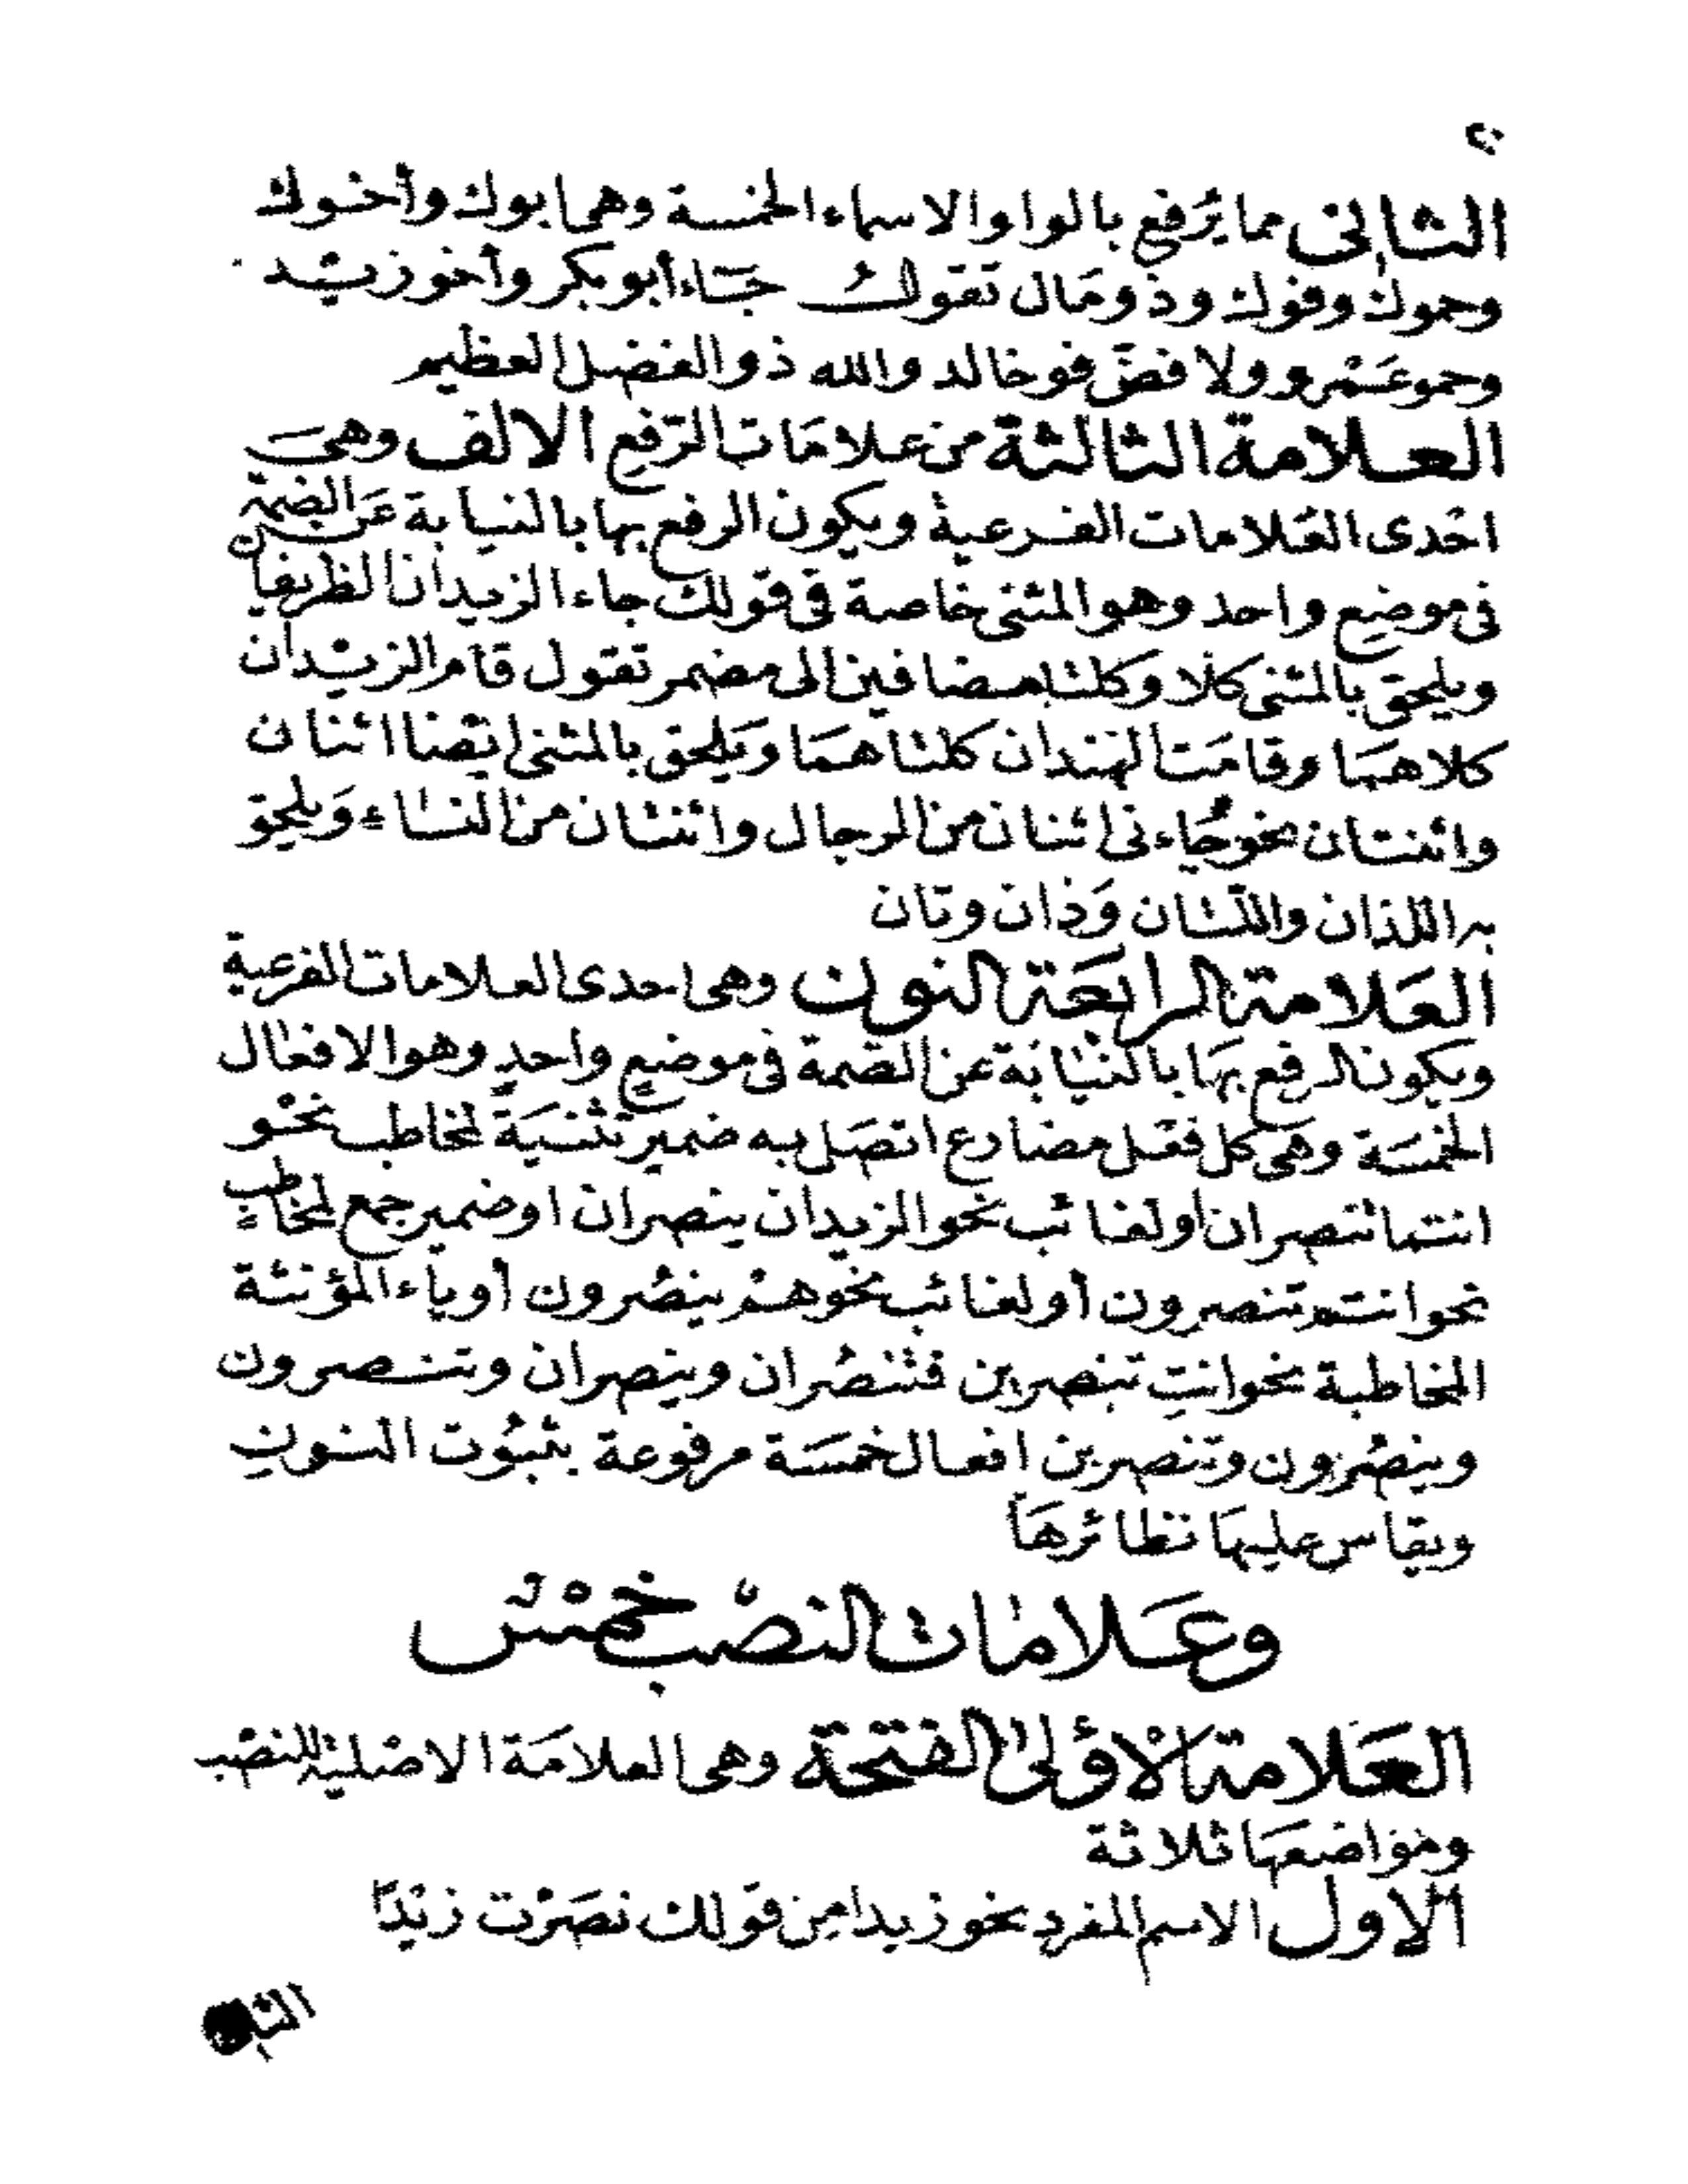 ٢٠
الثانى مما يرفع بالواو الاسماء الخمسة وهى ابوك وأخوك
وحموك وفوك وذو مال تقول جاء أبو بكر وأخو زيد
وحمو عمرو ولا فض فو خالد والله ذو الفضل العظيم
العلامة الثالثة من علامات الرفع الالف وهى
احدى العلامات الفرعية ويكون الرفع بها بالنيابة عن الضمة
فى موضع واحد وهو المثنى خاصة فى قولك جاء الزيدان الظريفان
ويلحق بالمثنى كلا وكلتا مضافين الى مضمر تقول قام الزيدان
كلاهما وقامت الهندان كلتاهما ويلحق بالمثنى ايضا اثنان
واثنتان نحو جاءنى اثنان من الرجال واثنتان من النساء ويلحق
به اللذان واللتان وذان وتان
العلامة الرابعة النون وهى احدى العلامات الفرعية
ويكون الرفع بها بالنيابة عن الضمة فى موضع واحد وهو الافعال
الخمسة وهى كل فعل مضارع اتصل به ضمير تثنية لمخاطب نحو
انتما تنصران او لغائب نحو الزيدان ينصران او ضمير جمع لمخاطب
نحو انتم تنصرون أو لغائب نحو هم ينصرون أو ياء المؤنثة
المخاطبة نحو انتِ تنصرين فتنصران وينصران وتنصرون
وينصرون وتنصرين افعال خمسة مرفوعة بثبوت النون
ويقاس عليها نظائرها
وعلامات النصب خمس
العلامة الاولى الفتحة وهى العلامة الاصلية للنصب
ومواضعها ثلاثة
الاول الاسم المفرد نحو زيدا من قولك نصرت زيدًا